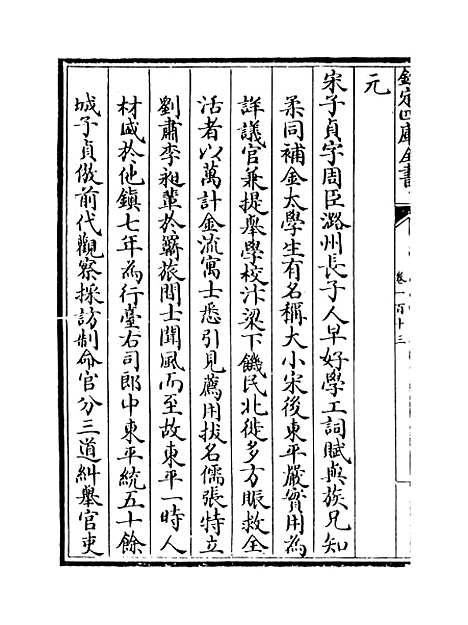 欽定四庫全書
卷一百十三
元
宋子貞字周臣潞州長子人早好學工詞賦與族兄知
柔同補金太學生有名稱大小宋後東平嚴實用為
詳議官兼提舉學校汴梁下饑民北徙多方賑救全
活者以萬計金流寓士悉引見薦用拔名儒張特立
劉肅李昶輩於羈旅間士聞風而至故東平一時人
材盛於他鎮七年為行臺右司郎中東平統五十餘
城子貞倣前代觀察採訪制命官分三道糾舉官吏